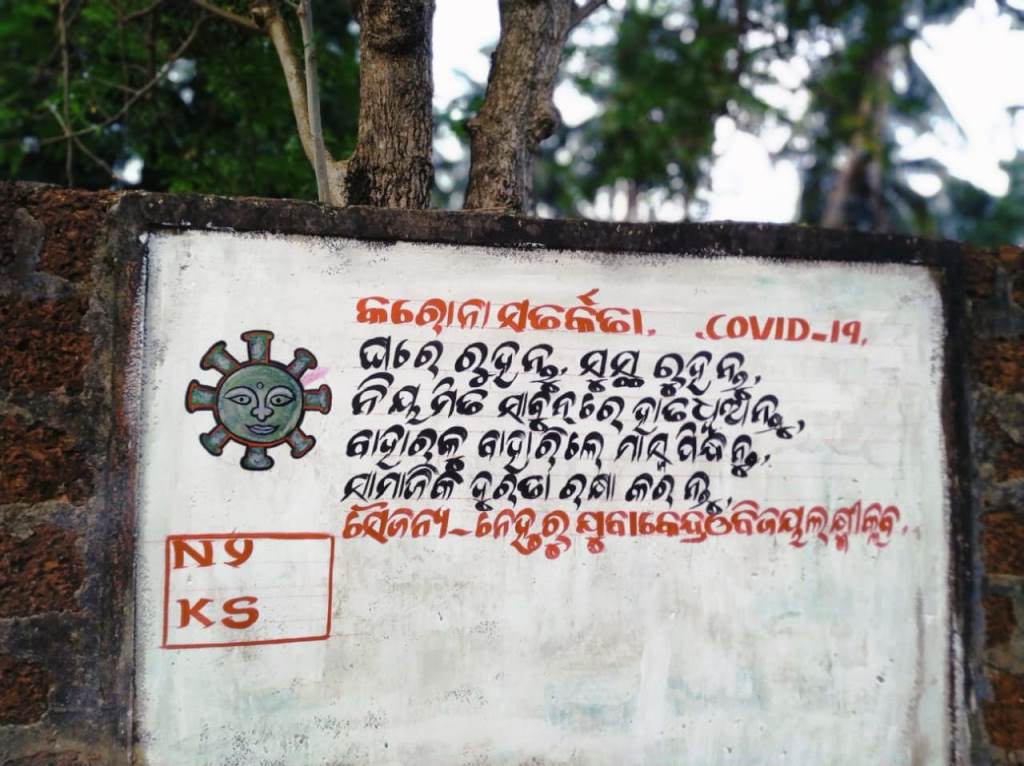 କରୋନା ସତର୍କତା, .COVID-19,
ଘାରେ ରୁହନ୍ତୁ, ସୁସ୍ଥ ରୁହନ୍ତୁ,
ନିୟମିତ ସାବୁନ୍‌ରେ ହାତଧୁଅନ୍ତୁ,
ବାହାରକୁ ବାହାରିଲେ ମାସ୍କ ପିନ୍ଧନ୍ତୁ,
ସାମାଜିକ ଦୁରତା ରକ୍ଷା କରନ୍ତୁ,
ସୈଜନ୍ୟ-ନେହୁରୁ ଯୁବାକେନ୍ଦ୍ରଓବିଜୟଲକ୍ଷ୍ମୀକ୍ଲବ,
NY
KS